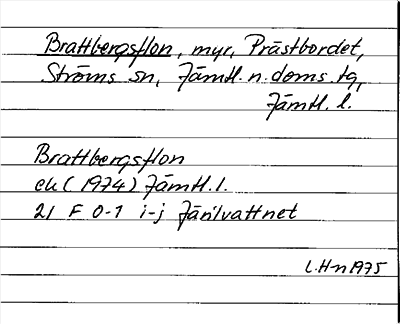 Brattbergsflon, myr, Prästbordet,
Ströms sn, Jämtl. n. doms. tg,
Jämtl. l.
Brattbergsflon
ek (1974) Jämtl. l.
21 F 0-1 i-j Järilvattnet
L.Hn 1975